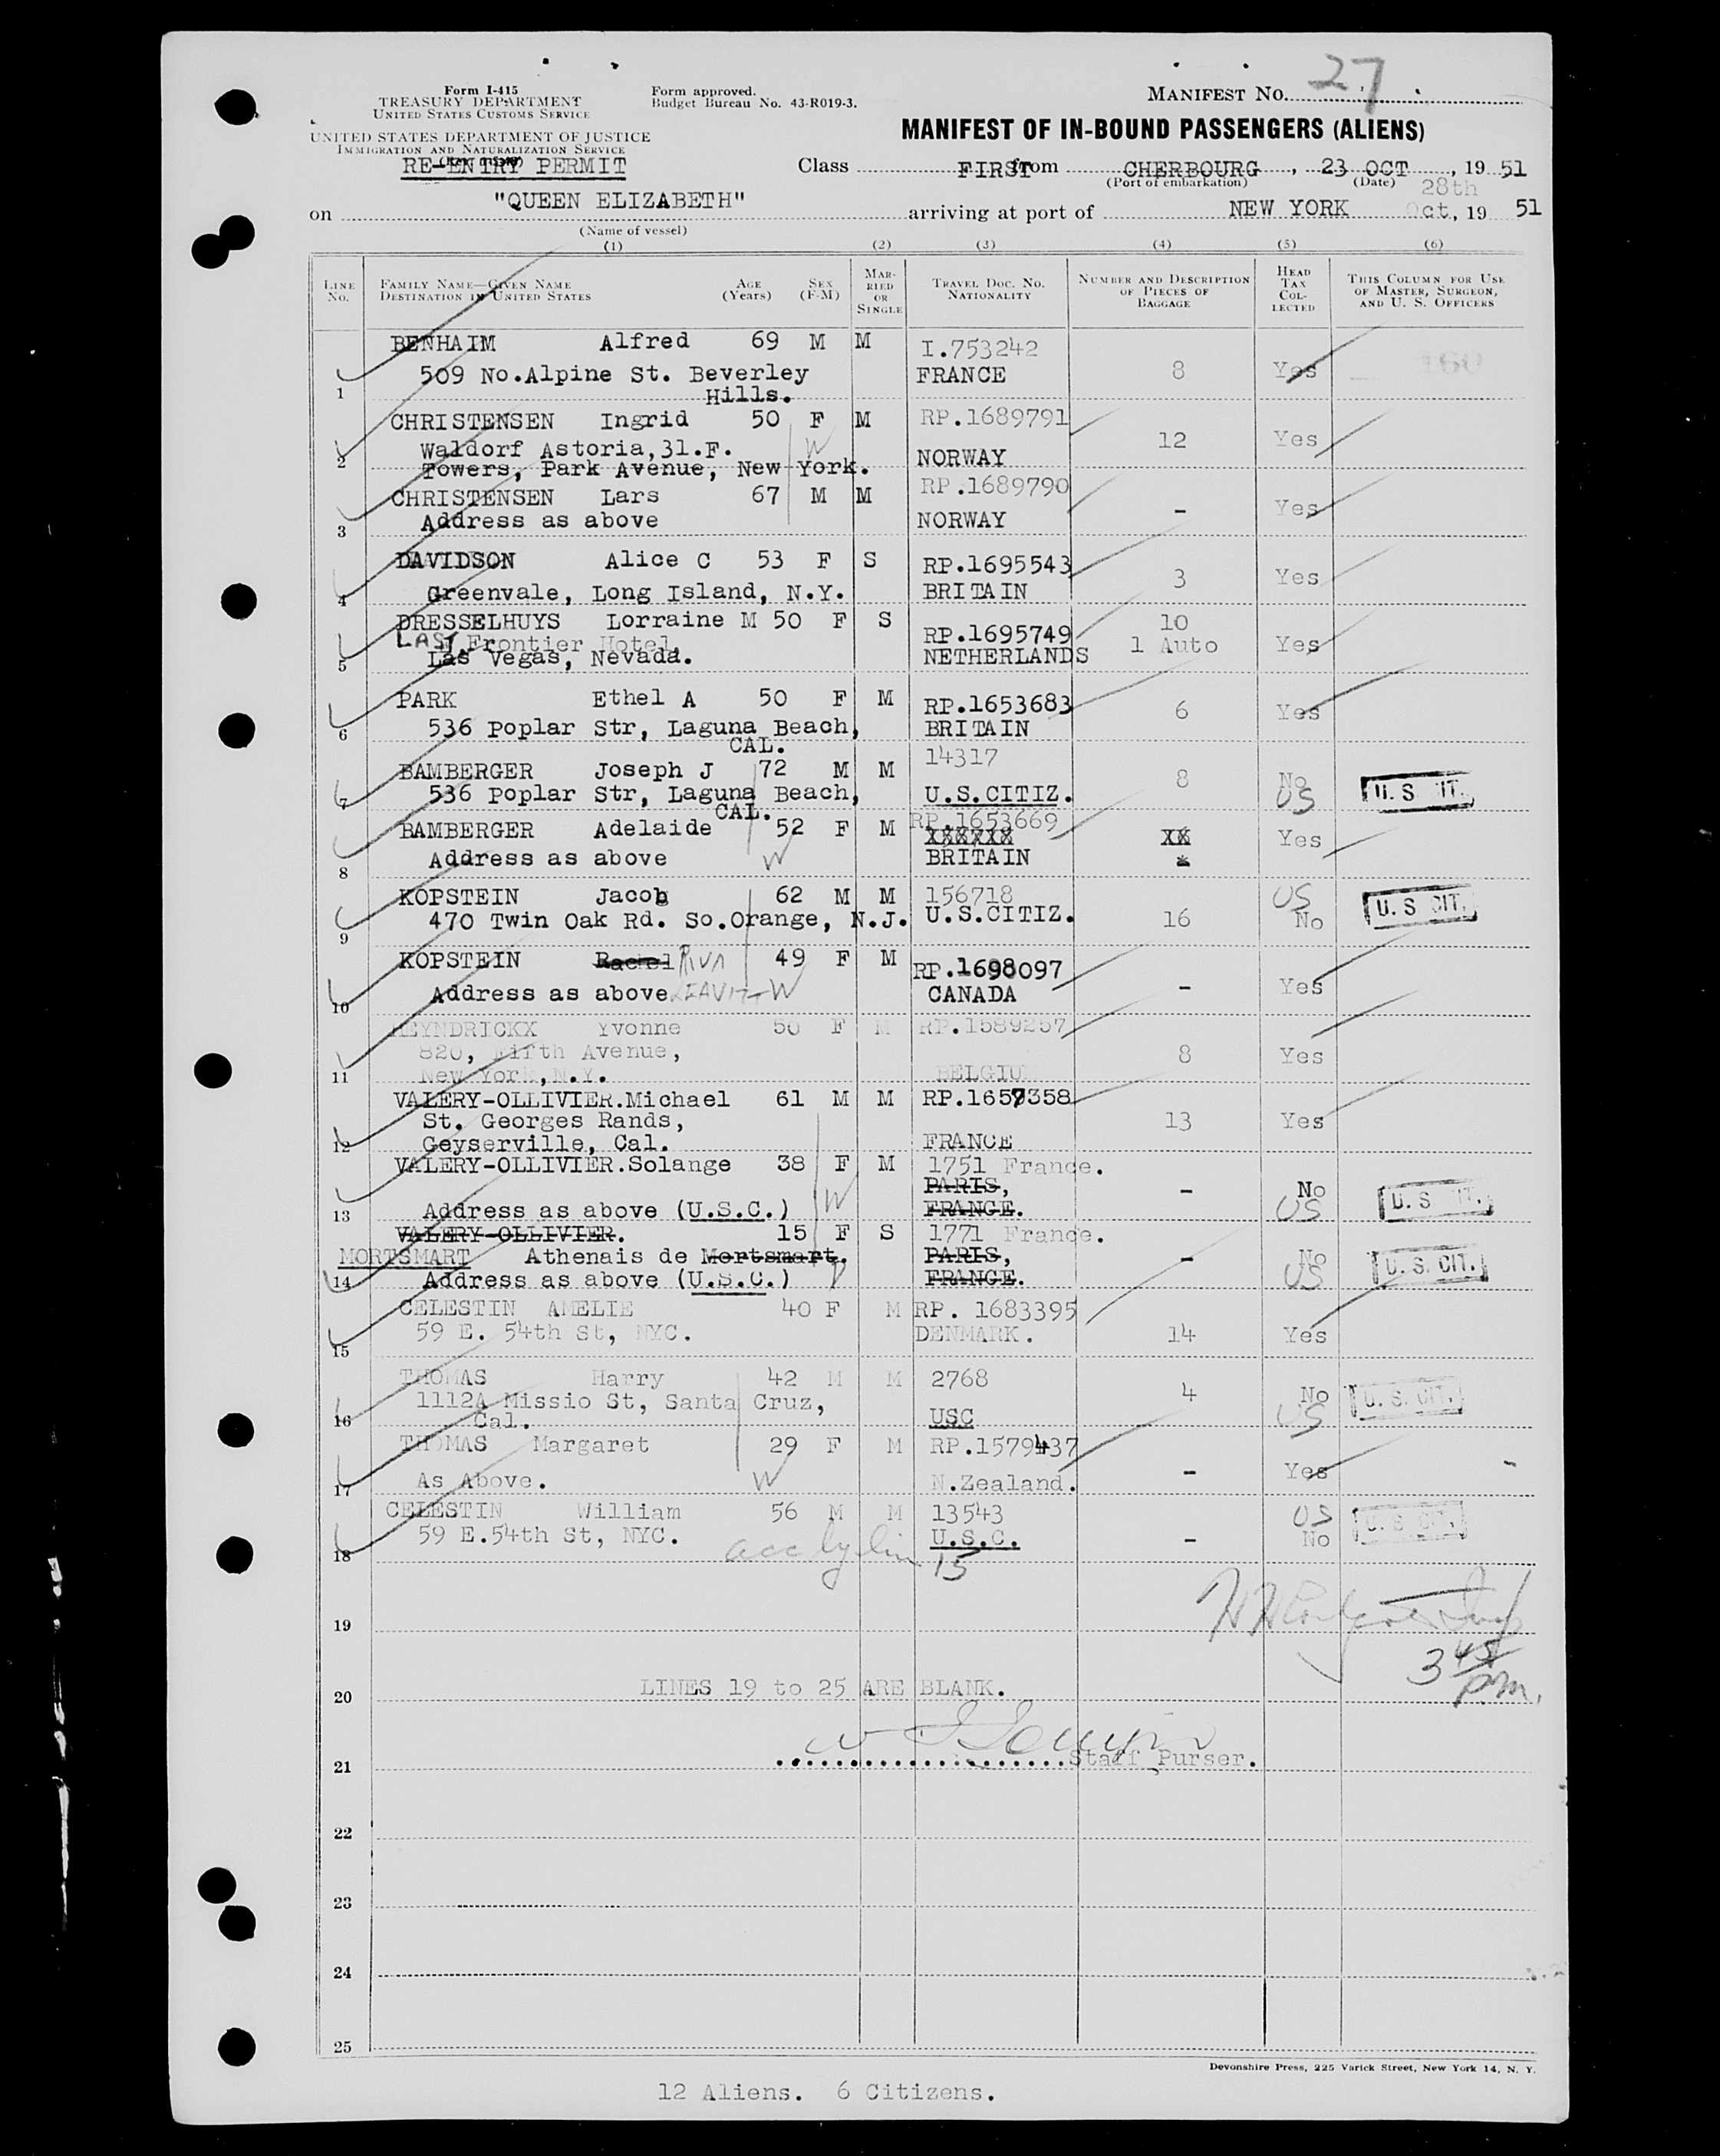 27
Form I-415
TREASURY DEPARTMENT
UNITED STATES CUSTOMS SERVICE
Form approved.
Budget Bureau No. 43-R019-3.
MANIFEST NO.
UNITED STATES DEPARTMENT OF JUSTICE
IMMIGRATION AND NATURALIZATION SERVICE
MANIFEST OF IN-BOUND PASSENGERS (ALIENS)
RE-ENTRY PERMIT
Class FIRST from CHERBOURG, 23 OCT, 19 51
(Port of embarkation) (Date)
on "QUEEN ELIZABETH" arriving at port of NEW YORK 28th Oct, 19 51
(Name of vessel)
(1) (2) (3) (4) (5) (6)
LINE No. FAMILY NAME—GIVEN NAME DESTINATION IN UNITED STATES AGE (Years) SEX (F-M) MARRIED OR SINGLE TRAVEL DOC. NO. NATIONALITY NUMBER AND DESCRIPTION OF PIECES OF BAGGAGE HEAD TAX COLLECTED THIS COLUMN FOR USE OF MASTER, SURGEON, AND U. S. OFFICERS
BENHAIM Alfred 69 M M I.753242
509 No.Alpine St. Beverley FRANCE 8 Yes 160
1 Hills.
CHRISTENSEN Ingrid 50 F M RP.1689791
Waldorf Astoria,31.F. W 12 Yes
2 Towers, Park Avenue, New York. NORWAY
CHRISTENSEN Lars 67 M M RP.1689790
3 Address as above NORWAY - Yes
DAVIDSON Alice C 53 F S RP.1695543
4 Greenvale, Long Island, N.Y. BRITAIN 3 Yes
DRESSELHUYS Lorraine M 50 F S RP.1695749 10
LAST Frontier Hotel, 1 Auto Yes
5 Las Vegas, Nevada. NETHERLANDS
PARK Ethel A 50 F M RP.1653683 6 Yes
6 536 Poplar Str, Laguna Beach, BRITAIN
CAL.
BAMBERGER Joseph J 72 M M 14317 8 No
7 536 Poplar Str, Laguna Beach, U.S.CITIZ. US U.S CIT.
CAL.
BAMBERGER Adelaide 52 F M RP.1653669 Yes
8 Address as above W BRITAIN
KOPSTEIN Jacob 62 M M 156718 US U.S CIT.
9 470 Twin Oak Rd. So.Orange, N.J. U.S.CITIZ. 16 No
KOPSTEIN Rachel RIVA 49 F M RP.1698097
10 Address as above LEAVITT W CANADA - Yes
HEYNDRICKX Yvonne 50 F M RP.1589257
820, Fifth Avenue, 8 Yes
11 New York,N.Y. BELGIU
VALERY-OLLIVIER.Michael 61 M M RP.1657358
St. Georges Rands, 13 Yes
12 Geyserville, Cal. FRANCE
VALERY-OLLIVIER.Solange 38 F M 1751 France.
PARIS, - No
13 Address as above (U.S.C.) W FRANCE. US U.S CIT.
VALERY-OLLIVIER. 15 F S 1771 France.
MORTSMART Athenais de Mortsmart. PARIS, - No
14 Address as above (U.S.C.) FRANCE. US U.S. CIT.
CELESTIN AMELIE 40 F M RP. 1683395
59 E. 54th St, NYC. DENMARK. 14 Yes
15
THOMAS Harry 42 M M 2768
1112A Missio St, Santa Cruz, 4 No U.S. CIT.
16 Cal. USC US
THOMAS Margaret 29 F M RP.1579437
17 As Above. W N.Zealand. - Yes
CELESTIN William 56 M M 13543 US U.S CIT.
59 E.54th St, NYC. U.S.C. - No
18 acc by line 15
19
3 45 pm.
20 LINES 19 to 25 ARE BLANK.
21 Staff Purser.
22
23
24
25
Devonshire Press, 225 Varick Street, New York 14, N. Y.
12 Aliens. 6 Citizens.